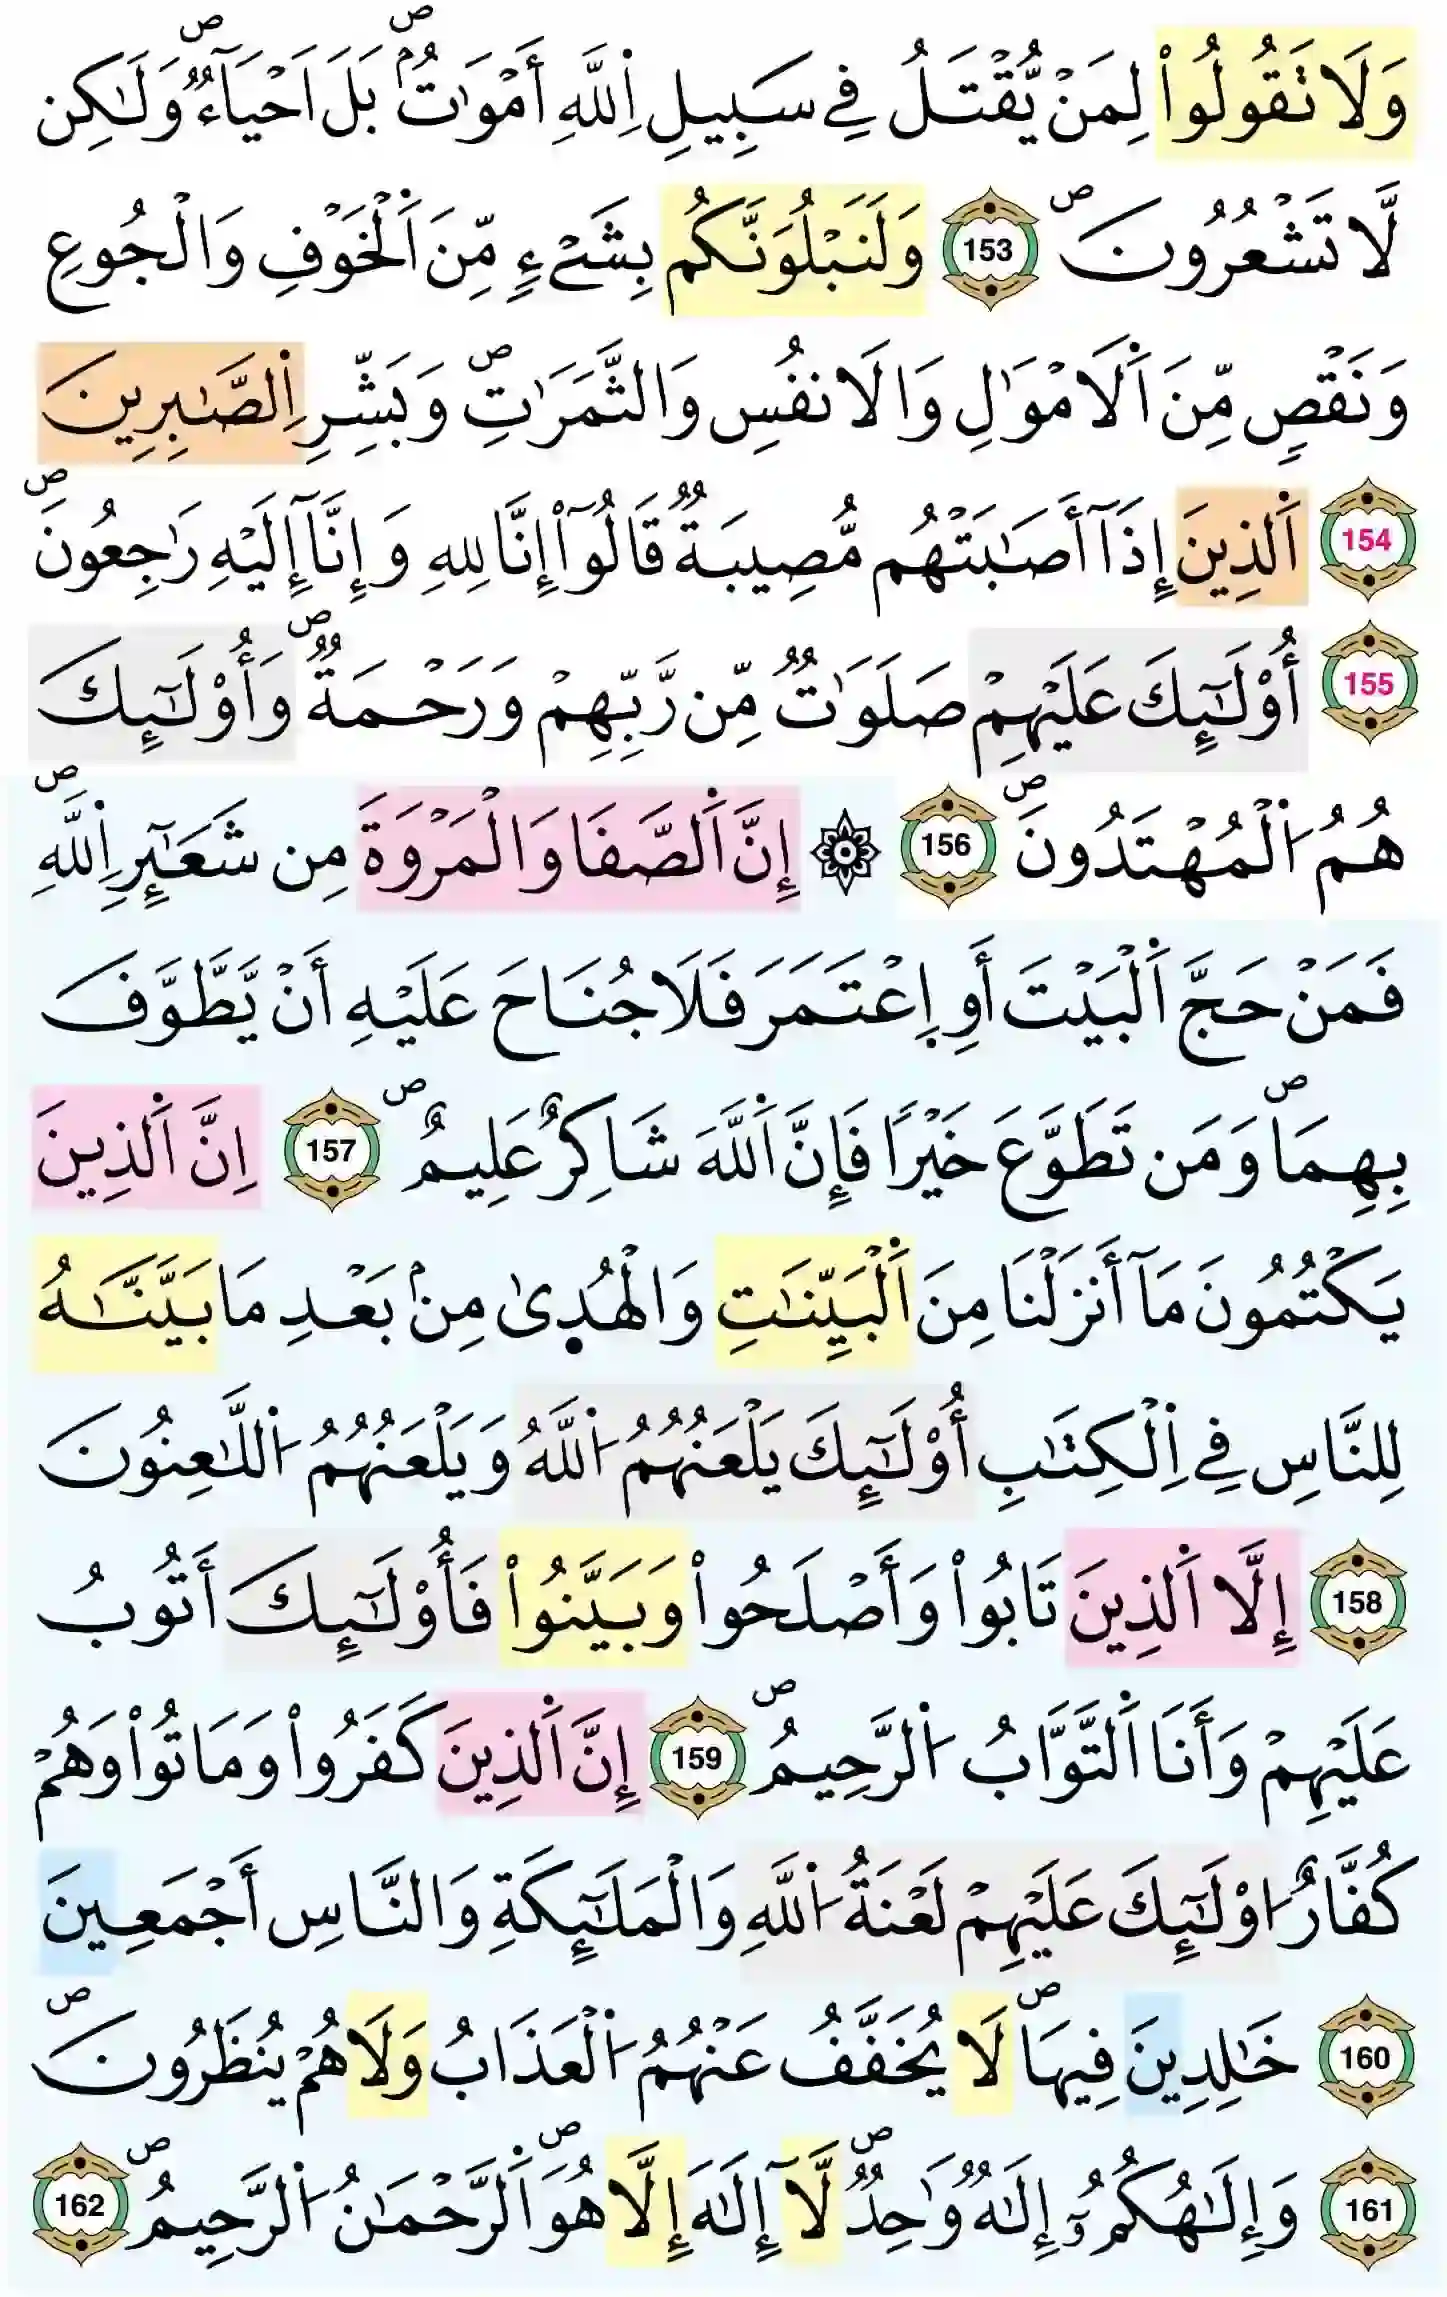 وَلَا تَقُولُواْ لِمَنْ يُّقْتَلُ فِے سَبِيلِ اِ۬للَّهِ أَمْوَٰتُۢۖ بَلَ اَحْيَآءٞۖ وَلَٰكِن
لَّا تَشْعُرُونَۖ 153 وَلَنَبْلُوَنَّكُم بِشَےْءٖ مِّنَ اَ۬لْخَوْفِ وَالْجُوعِ
وَنَقْصٖ مِّنَ اَ۬لَامْوَٰلِ وَالَانفُسِ وَالثَّمَرَٰتِۖ وَبَشِّرِ اِ۬لصَّٰبِرِينَ
154 اَ۬لذِينَ إِذَآ أَصَٰبَتْهُم مُّصِيبَةٞ قَالُوٓاْ إِنَّا لِلهِ وَإِنَّآ إِلَيْهِ رَٰجِعُونَۖ
155 أُوْلَٰٓئِكَ عَلَيْهِمْ صَلَوَٰتٞ مِّن رَّبِّهِمْ وَرَحْمَةٞۖ وَأُوْلَٰٓئِكَ
هُمُ اُ۬لْمُهْتَدُونَۖ 156 ۞ إِنَّ اَ۬لصَّفَا وَالْمَرْوَةَ مِن شَعَٰٓئِرِ اِ۬للَّهِۖ
فَمَنْ حَجَّ اَ۬لْبَيْتَ أَوِ اِ۪عْتَمَرَ فَلَا جُنَاحَ عَلَيْهِ أَنْ يَّطَّوَّفَ
بِهِمَاۖ وَمَن تَطَوَّعَ خَيْراٗ فَإِنَّ اَ۬للَّهَ شَاكِرٌ عَلِيمٌۖ 157 اِنَّ اَ۬لذِينَ
يَكْتُمُونَ مَآ أَنزَلْنَا مِنَ اَ۬لْبَيِّنَٰتِ وَالْهُد۪يٰ مِنۢ بَعْدِ مَا بَيَّنَّٰهُ
لِلنَّاسِ فِے اِ۬لْكِتَٰبِ أُوْلَٰٓئِكَ يَلْعَنُهُمُ اُ۬للَّهُ وَيَلْعَنُهُمُ اُ۬للَّٰعِنُونَ
158 إِلَّا اَ۬لذِينَ تَابُواْ وَأَصْلَحُواْ وَبَيَّنُواْ فَأُوْلَٰٓئِكَ أَتُوبُ
عَلَيْهِمْ وَأَنَا اَ۬لتَّوَّابُ اُ۬لرَّحِيمُۖ 159 إِنَّ اَ۬لذِينَ كَفَرُواْ وَمَاتُواْ وَهُمْ
كُفَّارٌ اُوْلَٰٓئِكَ عَلَيْهِمْ لَعْنَةُ اُ۬للَّهِ وَالْمَلَٰٓئِكَةِ وَالنَّاسِ أَجْمَعِينَ
160 خَٰلِدِينَ فِيهَاۖ لَا يُخَفَّفُ عَنْهُمُ اُ۬لْعَذَابُ وَلَا هُمْ يُنظَرُونَۖ
161 وَإِلَٰهُكُمُۥٓ إِلَٰهٞ وَٰحِدٞۖ لَّآ إِلَٰهَ إِلَّا هُوَۖ اَ۬لرَّحْمَٰنُ اُ۬لرَّحِيمُۖ 162